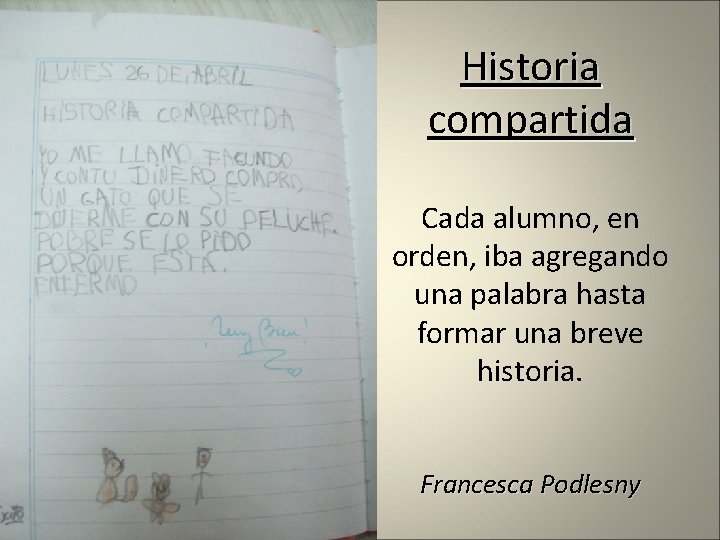 LUNES 26 DE ABRIL
HISTORIA COMPARTIDA
YO ME LLAMO FACUNDO
Y CON TU DINERO COMPRO
UN GATO QUE SE
DUERME CON SU PELUCHE.
POBRE SE LO PIDO
PORQUE ESTA.
ENFERMO
¡Muy Bien!
Historia
compartida
Cada alumno, en
orden, iba agregando
una palabra hasta
formar una breve
historia.
Francesca Podlesny